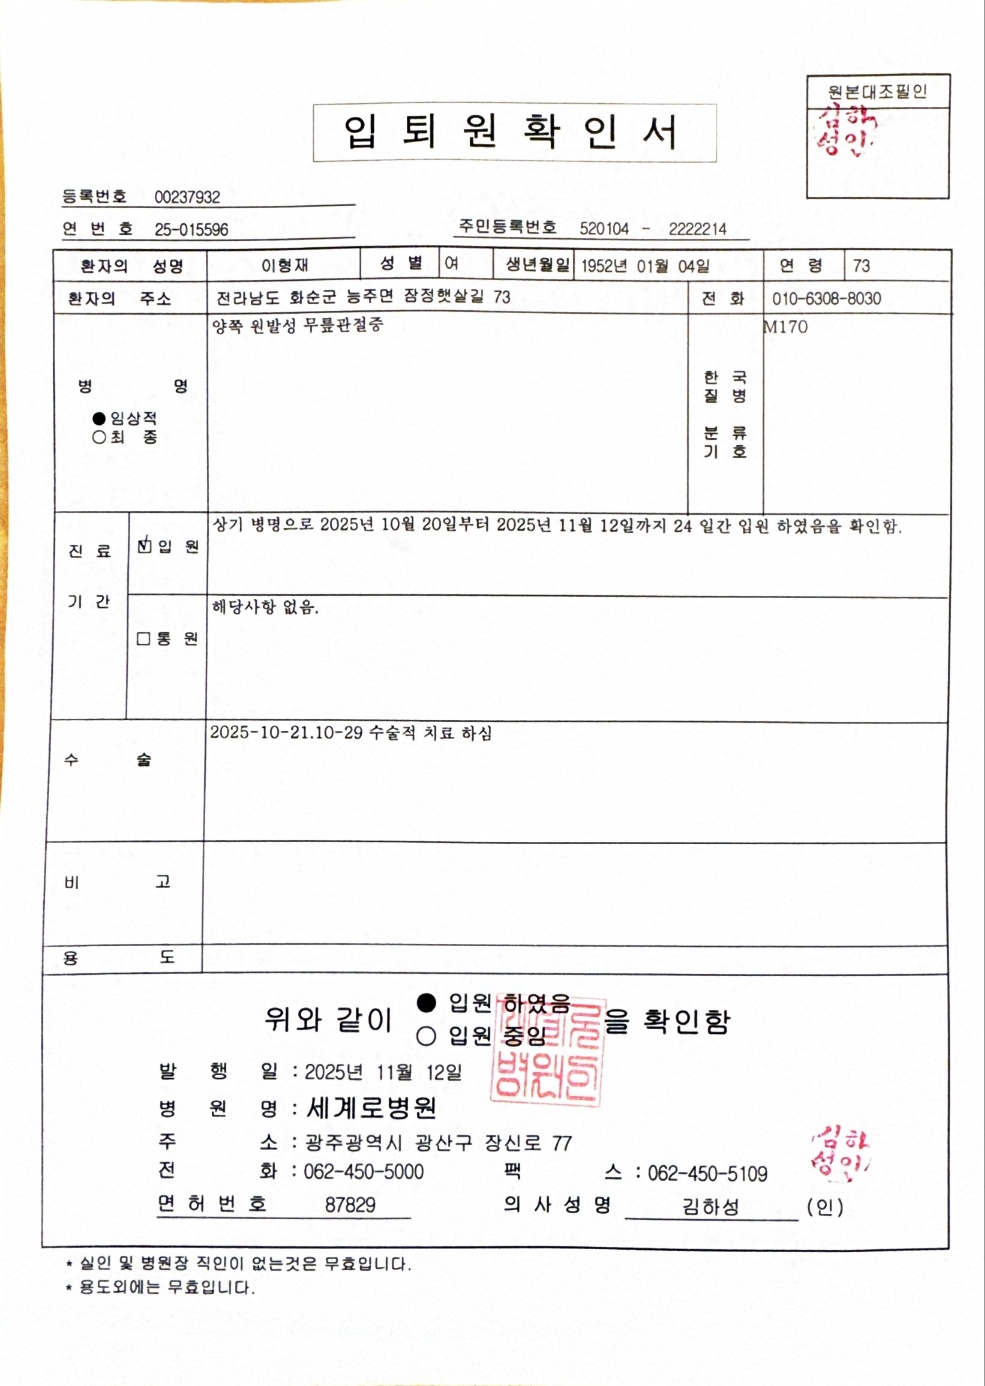 원본대조필인
입 퇴 원 확 인 서
등록번호 00237932
연 번 호 25-015596
주민등록번호 520104 - 2222214
환자의 성명 이형재 성 별 여 생년월일 1952년 01월 04일 연 령 73
환자의 주소 전라남도 화순군 능주면 잠정햇살길 73 전 화 010-6308-8030
병 명
●임상적
○최 종
양쪽 원발성 무릎관절증
한 국
질 병
분 류
기 호
M170
진 료
기 간
☑입 원
상기 병명으로 2025년 10월 20일부터 2025년 11월 12일까지 24 일간 입원 하였음을 확인함.
□통 원
해당사항 없음.
수 술
2025-10-21.10-29 수술적 치료 하심
비 고
용 도
위와 같이
● 입원 하였음
○ 입원 중임
을 확인함
발 행 일 : 2025년 11월 12일
병 원 명 : 세계로병원
주 소 : 광주광역시 광산구 장신로 77
전 화 : 062-450-5000 팩 스 : 062-450-5109
면 허 번 호 87829 의 사 성 명 김하성 (인)
* 실인 및 병원장 직인이 없는것은 무효입니다.
* 용도외에는 무효입니다.